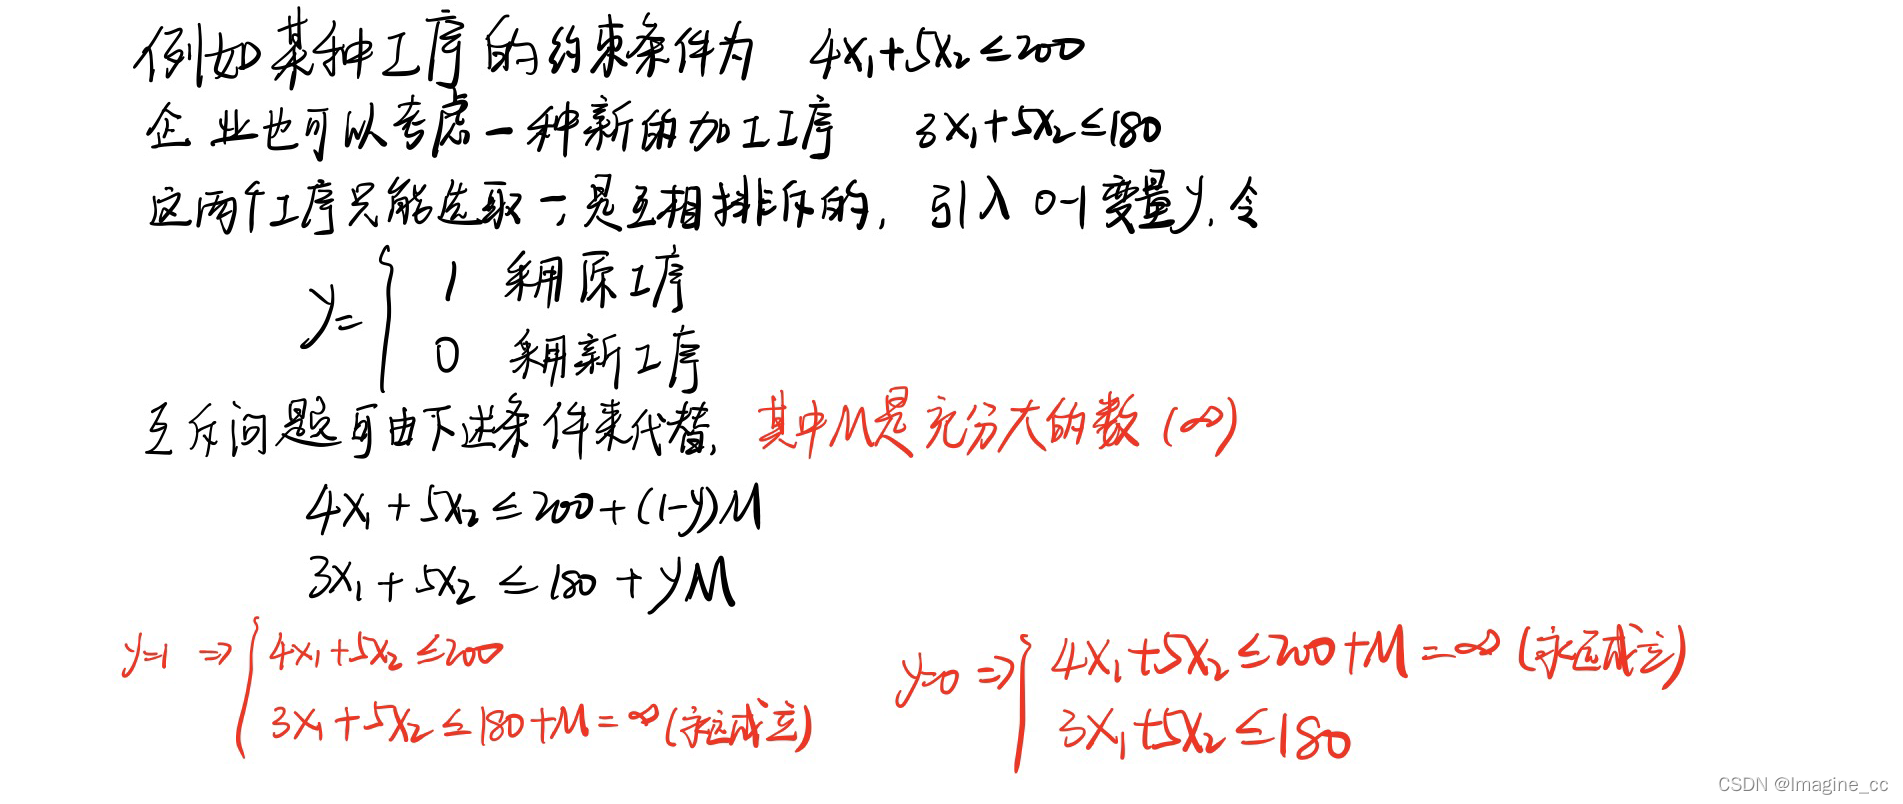 例如某种工序的约束条件为 4x₁+5x₂≤200
企业也可以考虑一种新的加工工序 3x₁+5x₂≤180
这两个工序只能选取一,是互相排斥的,引入0-1变量y,令
y={ 1 采用原工序
0 采用新工序
互斥问题可由下述条件来代替,其中M是充分大的数(∞)
4x₁+5x₂≤200+(1-y)M
3x₁+5x₂≤180+yM
y=1 ⇒ { 4x₁+5x₂≤200
3x₁+5x₂≤180+M=∞(永远成立)
y=0 ⇒ { 4x₁+5x₂≤200+M=∞(永远成立)
3x₁+5x₂≤180
CSDN @Imagine_cc